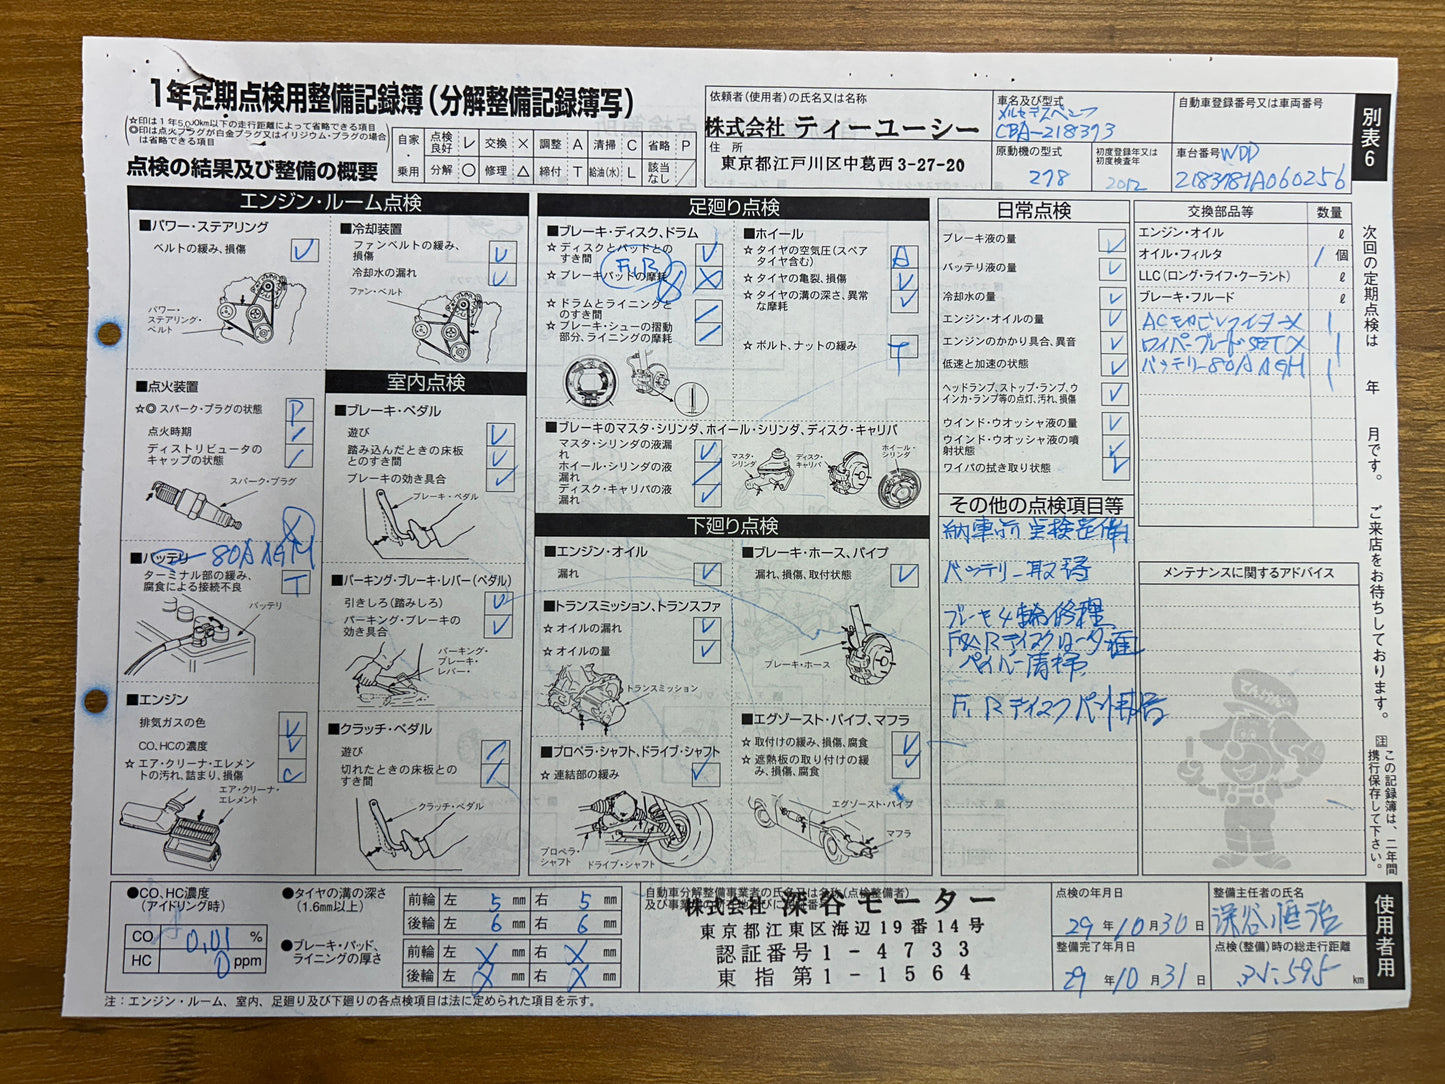 1年定期点検用整備記録簿(分解整備記録簿写)
☆印は1年5,000km以下の走行距離によって省略できる項目
◎印は点火プラグが白金プラグ又はイリジウム・プラグの場合は省略できる項目
点検の結果及び整備の概要
自家・乗用
点検良好 レ 交換 × 調整 A 清掃 C 省略 P
分解 ○ 修理 △ 締付 T 給油(水) L 該当なし ／
依頼者(使用者)の氏名又は名称
株式会社 ティーユーシー
住所
東京都江戸川区中葛西3-27-20
車名及び型式
メルセデスベンツ
CBA-218373
自動車登録番号又は車両番号
原動機の型式
278
初度登録年又は初度検査年
2012
車台番号 WDD
2183781A060256
別表6
エンジン・ルーム点検
■パワー・ステアリング
ベルトの緩み、損傷 レ
パワー・ステアリング・ベルト
■冷却装置
ファンベルトの緩み、損傷 レ
冷却水の漏れ レ
ファン・ベルト
■点火装置
☆◎ スパーク・プラグの状態 P
点火時期 ／
ディストリビュータのキャップの状態 ／
スパーク・プラグ
■バッテリ 80A AGM ×
ターミナル部の緩み、腐食による接続不良 T
バッテリ
■エンジン
排気ガスの色 レ
CO、HCの濃度 レ
☆ エア・クリーナ・エレメントの汚れ、詰まり、損傷 C
エア・クリーナ・エレメント
室内点検
■ブレーキ・ペダル
遊び レ
踏み込んだときの床板とのすき間 レ
ブレーキの効き具合 レ
ブレーキ・ペダル
■パーキング・ブレーキ・レバー(ペダル)
引きしろ(踏みしろ) レ
パーキング・ブレーキの効き具合 レ
パーキング・ブレーキ・レバー
■クラッチ・ペダル
遊び ／
切れたときの床板とのすき間 ／
クラッチ・ペダル
足廻り点検
■ブレーキ・ディスク、ドラム
☆ ディスクとパッドとのすき間 レ
☆ ブレーキパッドの摩耗 F,R ×
☆ ドラムとライニングとのすき間 ／
☆ ブレーキ・シューの摺動部分、ライニングの摩耗 ／
■ホイール
☆ タイヤの空気圧(スペアタイヤ含む) A
☆ タイヤの亀裂、損傷 レ
☆ タイヤの溝の深さ、異常な摩耗 レ
☆ ボルト、ナットの緩み T
■ブレーキのマスタ・シリンダ、ホイール・シリンダ、ディスク・キャリパ
マスタ・シリンダの液漏れ レ
ホイール・シリンダの液漏れ ／
ディスク・キャリパの液漏れ レ
マスタ・シリンダ
ディスク・キャリパ
ホイール・シリンダ
下廻り点検
■エンジン・オイル
漏れ レ
■トランスミッション、トランスファ
☆ オイルの漏れ レ
☆ オイルの量 レ
トランスミッション
■プロペラ・シャフト、ドライブ・シャフト
☆ 連結部の緩み レ
プロペラ・シャフト
ドライブ・シャフト
■ブレーキ・ホース、パイプ
漏れ、損傷、取付状態 レ
ブレーキ・ホース
■エグゾースト・パイプ、マフラ
☆ 取付けの緩み、損傷、腐食 レ
☆ 遮熱板の取り付けの緩み、損傷、腐食
エグゾースト・パイプ
マフラ
日常点検
ブレーキ液の量 レ
バッテリ液の量 レ
冷却水の量 レ
エンジン・オイルの量 レ
エンジンのかかり具合、異音 レ
低速と加速の状態 レ
ヘッドランプ、ストップ・ランプ、ウインカ・ランプ等の点灯、汚れ、損傷 レ
ウインド・ウオッシャ液の量 レ
ウインド・ウオッシャ液の噴射状態 レ
ワイパの拭き取り状態 レ
その他の点検項目等
納車前点検整備
バッテリー取替
ブレーキ4輪修理
F&Rディスクローター
ペイパー清掃
F、Rディスクパット
交換部品等 数量
エンジン・オイル ℓ
オイル・フィルタ 1 個
LLC(ロング・ライフ・クーラント) ℓ
ブレーキ・フルード ℓ
1
ワイパーブレード SET × 1
バッテリー80A AGM 1
メンテナンスに関するアドバイス
次回の定期点検は 年 月です。 ご来店をお待ちしております。
注 この記録簿は、二年間携行保存して下さい。
使用者用
●CO、HC濃度(アイドリング時)
CO 0.01 %
HC 0 ppm
●タイヤの溝の深さ(1.6mm以上)
前輪 左 5 mm 右 5 mm
後輪 左 6 mm 右 6 mm
●ブレーキ・パッド、ライニングの厚さ
前輪 左 × mm 右 × mm
後輪 左 × mm 右 × mm
自動車分解整備事業者の氏名又は名称(点検整備者)
株式会社 深谷モーター
東京都江東区海辺19番14号
認証番号1-4733
東指第1-1564
点検の年月日
29年10月30日
整備完了年月日
29年10月31日
整備主任者の氏名
深谷恒治
点検(整備)時の総走行距離
35,595 km
注:エンジン・ルーム、室内、足廻り及び下廻りの各点検項目は法に定められた項目を示す。